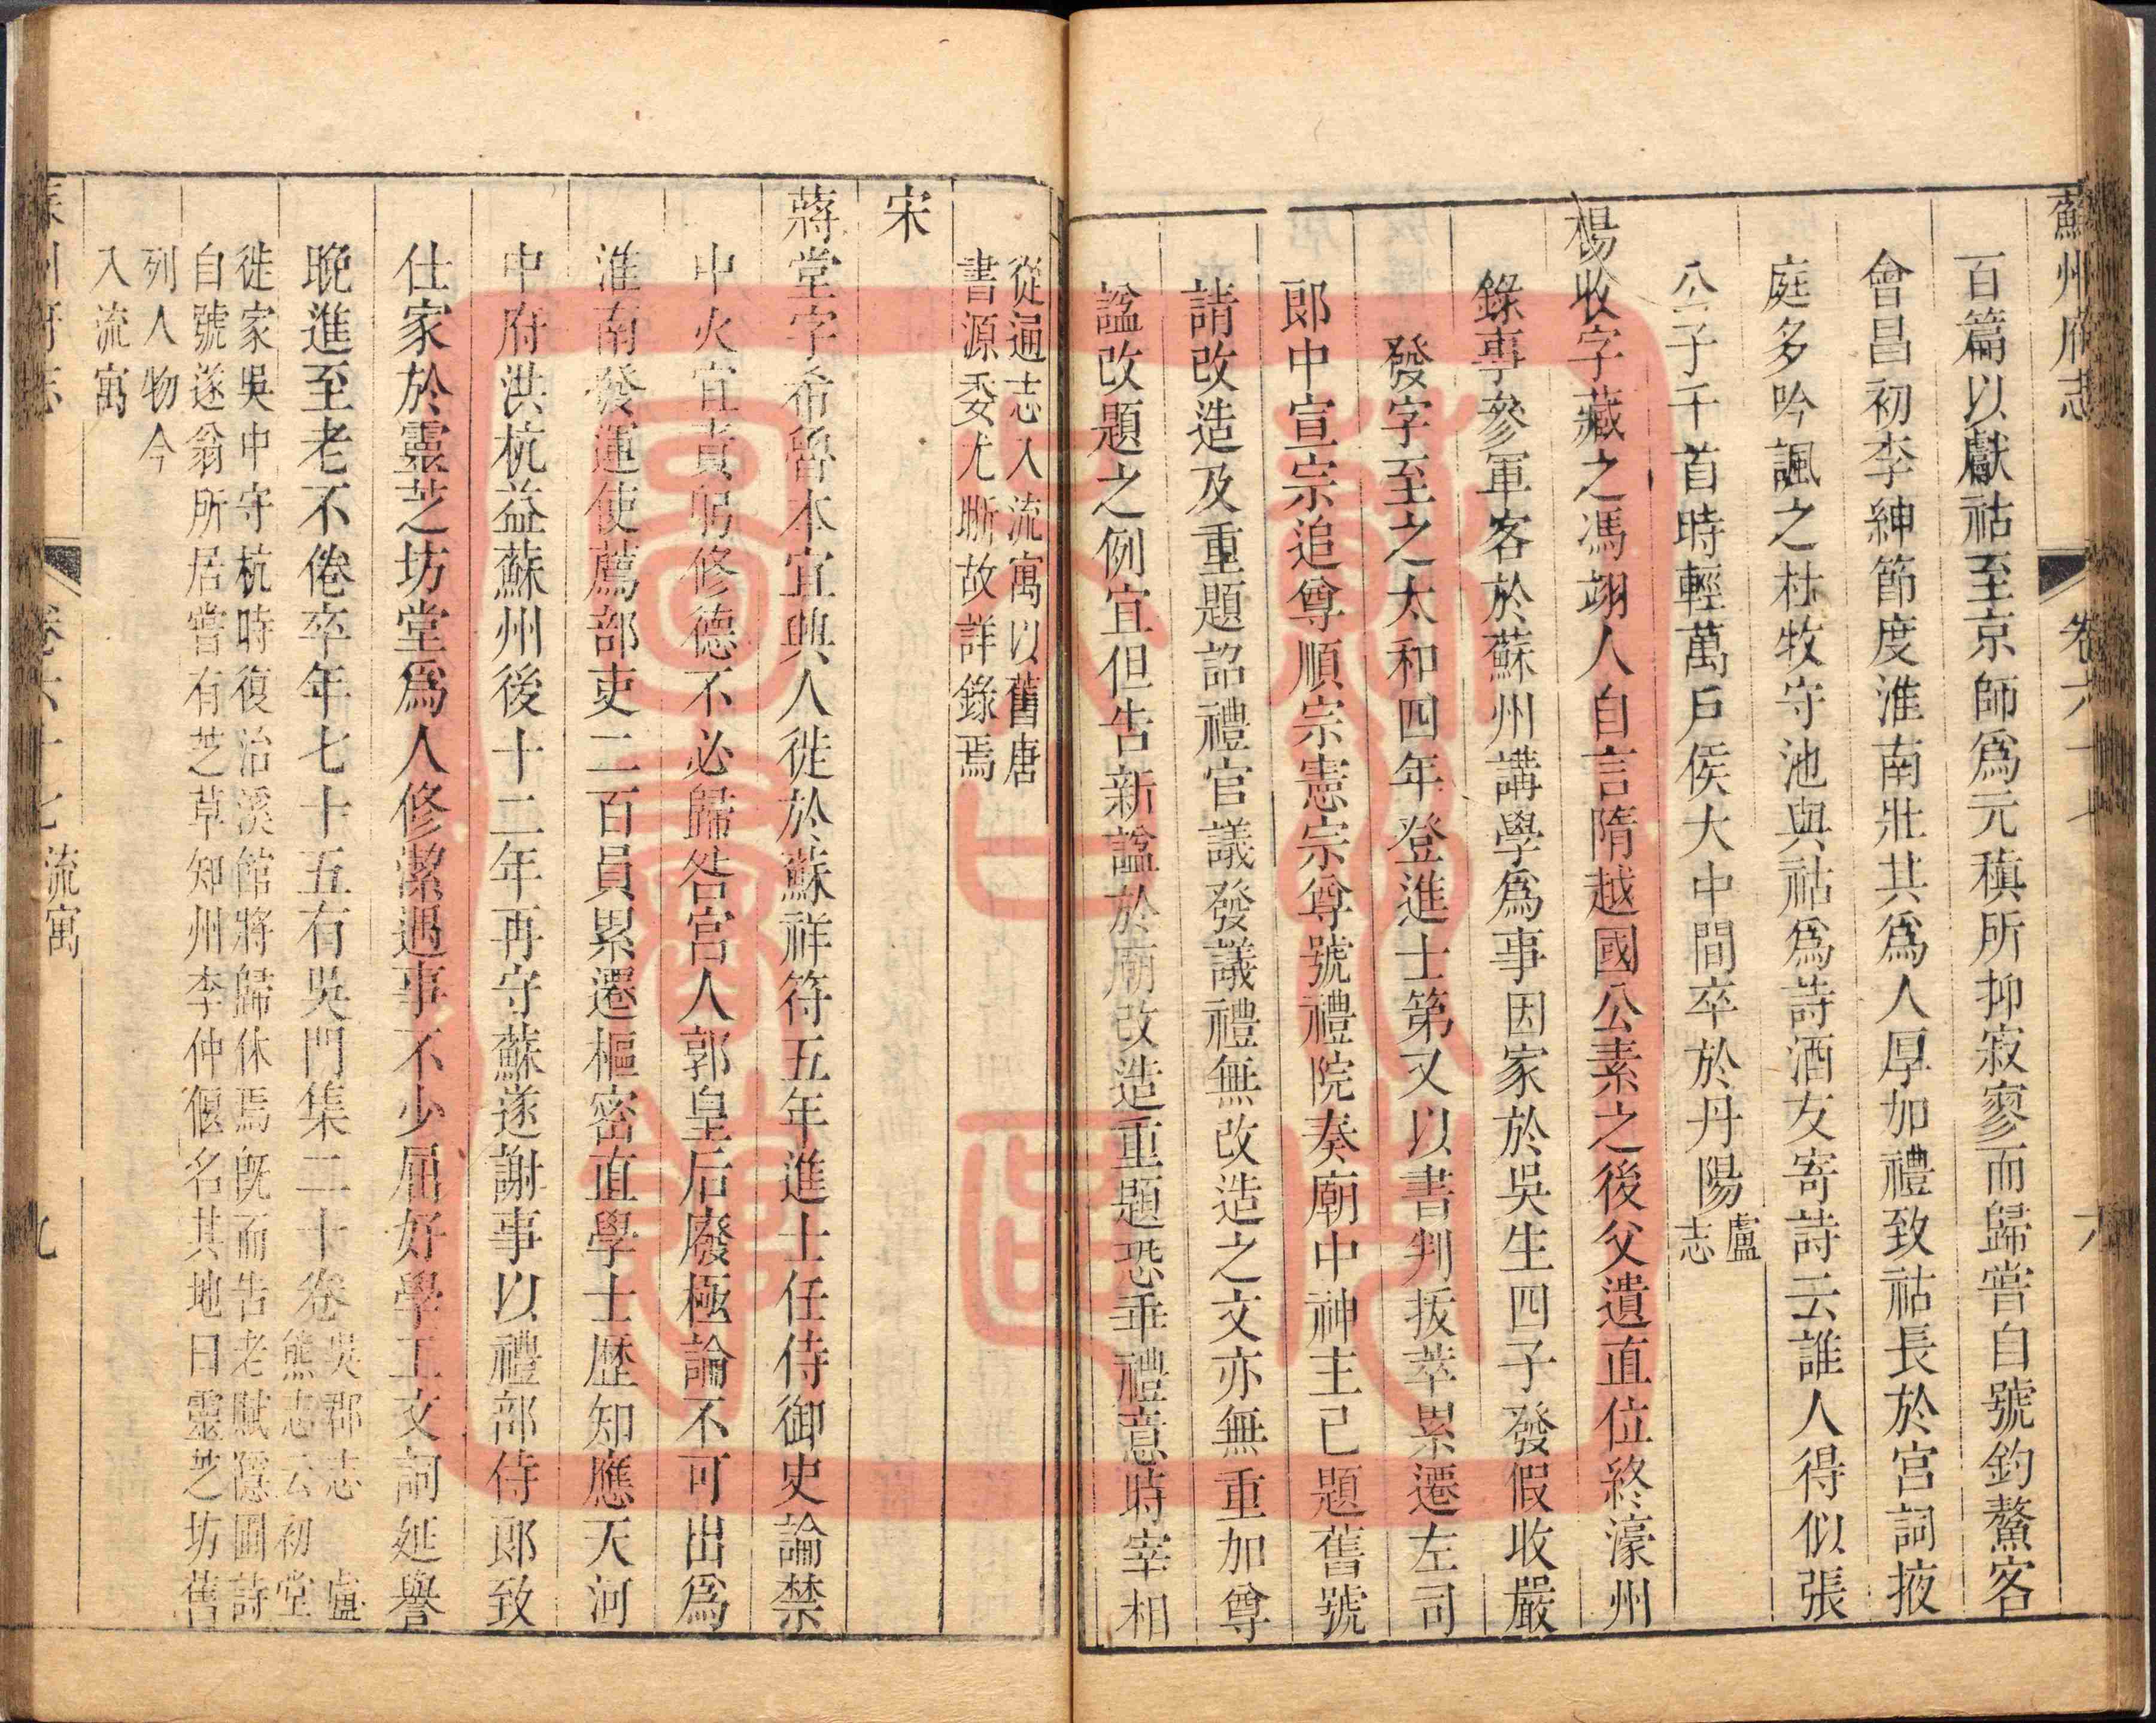 蘇州府志
卷六十七
六
百篇以獻祜至京師爲元稹所抑寂寥而歸嘗自號釣鰲客
會昌初李紳節度淮南壯其爲人厚加禮致祜長於宮詞掖
庭多吟諷之杜牧守池與祜爲詩酒友寄詩云誰人得似張
公子千首時輕萬戶侯大中間卒於丹陽
盧
志
楊收字藏之馮翊人自言隋越國公素之後父遺直位終濠州
錄事參軍客於蘇州講學爲事因家於吳生四子發假收嚴
發字至之太和四年登進士第又以書判拔萃累遷左司
郎中宣宗追尊順宗憲宗尊號禮院奏廟中神主已題舊號
請改造及重題詔禮官議發議禮無改造之文亦無重加尊
諡改題之例宜但告新諡於廟改造重題恐乖禮意時宰相
從逌志入流寓以舊唐
書源委尤晰故詳錄焉
宋
蔣堂字希魯本宜興人徙於蘇祥符五年進士任侍御史論禁
中火宜責躬修德不必歸咎宮人郭皇后廢極論不可出爲
淮南發運使薦部吏二百員累遷樞密直學士歷知應天河
中府洪杭益蘇州後十二年再守蘇遂謝事以禮部侍郎致
仕家於靈芝坊堂爲人修潔遇事不少屈好學工文詞延譽
晚進至老不倦卒年七十五有吳門集二十卷
吳郡志 盧
熊志云初堂
徙家吳中守杭時復治溪館將歸休焉旣而告老賦隱圃詩
自號遂翁所居嘗有芝草知州李仲偃名其地曰靈芝坊舊
列人物今
入流寓
蘇州府志
卷六十七
流寓
九